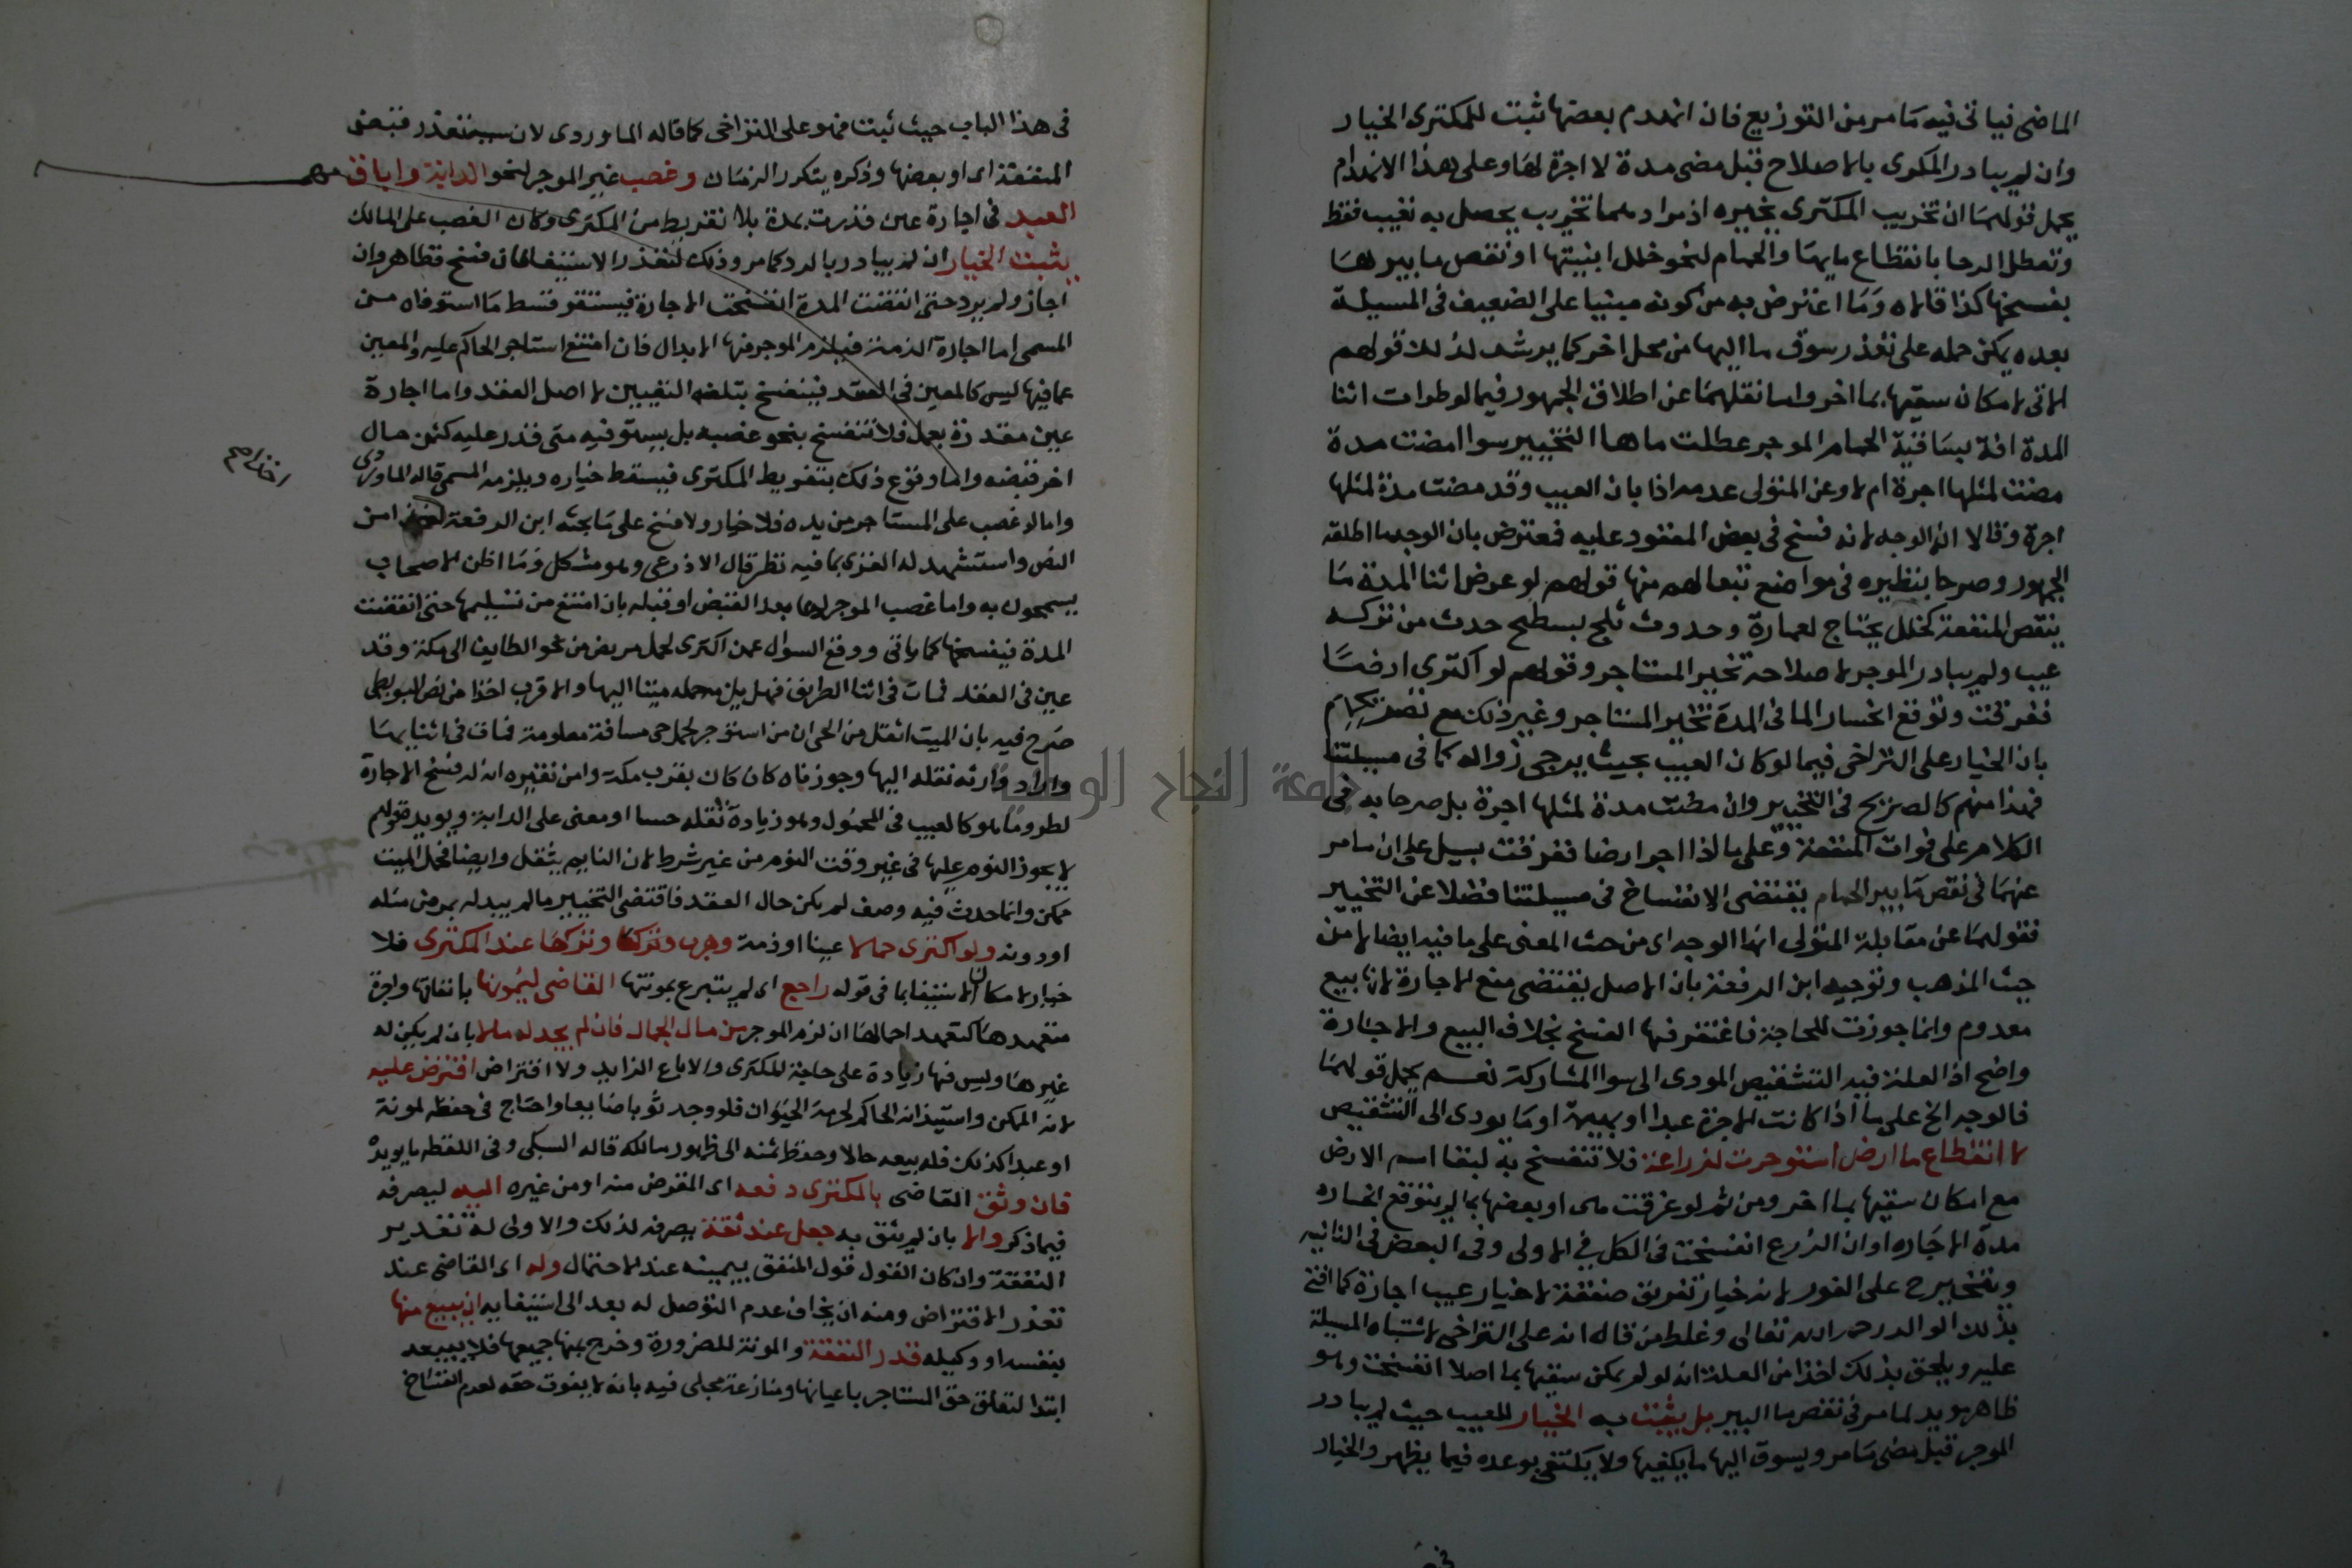 الماضى فياتى فيه ما مر من التوزيع فان انهدم بعضها ثبت للمكترى الخيار
وان لم يبادر المكرى بالاصلاح قبل مضى مدة لا اجرة لها وعلى هذا الانهدام
يحمل قولهما ان تخريب المكترى يخيره اذ مرادهما تخريب يحصل به تعيب فقط
وتعطل الرحا بانقطاع مايها والحمام لنحو خلل ابنيتها او نقص ما بيرها
بفسخها كذا قالاه وما اعترض به من كونه مبنيا على الضعيف فى المسيلة
بعده يمكن حمله على تعذر سوق ما اليها من محل اخر كما يرشد لذلك قولهم
الاتى لامكان سقيها بما اخر واما نقلهما عن اطلاق الجمهور فيما لو طرات اثنا
المدة افة بساقية الحمام الموجر عطلت ماها التخيير سوا امضت مدة
مضت لمثلها اجرة ام لا وعن المتولى عدمه اذا بان العيب وقد مضت مدة لمثلها
اجرة وقالا انه الوجه لانه فسخ فى بعض المعقود عليه فمعترض بان الوجه ما اطلقه
الجمهور وصرحا بنظيره فى مواضع تبعا لهم منها قولهم لو عرض اثنا المدة ما
ينقص المنفعة كخلل يحتاج لعمارة وحدوث ثلج بسطح حدث من تركه
عيب ولم يبادر الموجر لاصلاحه تخير المستاجر وقولهم لو اكترى ارضا
فغرقت وتوقع انحسار الما فى المدة تخير المستاجر وغير ذلك مع تصريحهم
بان الخيار على التراخى فيما لو كان العيب بحيث يرجى زواله كما فى مسيلتنا
فهذا منهم كالصريح فى التخيير وان مضت مدة لمثلها اجرة بل صرحا به فى
الكلام على فوات المنفعة وعلى ما لذا اجر ارضا فغرقت بسيل على ان ما مر
عنهما فى نقص ما بير الحمام يقتضى الانفساخ فى مسيلتنا فضلا عن التخيير
فقولهما عن مقابلة المتولى انها الوجه اى من حيث المعنى على ما فيه ايضا لا من
حيث المذهب وتوجيه ابن الرفعة بان الاصل يقتضى منع الاجارة لانها بيع
معدوم وانما جوزت للحاجة فاغتفر فيها الفسخ بخلاف البيع والاجارة
واضح اذ العلة فيه التشقيص المودى الى سوا المشاركة نعم يحمل قولهما
فالوجه الخ على ما اذا كانت الاجرة عبدا او بهيمة او ما يودى الى التشقيص
لا انقطاع ما ارض استوجرت لزراعة فلا تنفسخ به لبقا اسم الارض
مع امكان سقيها بما اخر ومن ثم لو غرقت هى او بعضها بما لم يتوقع انحساره
مدة الاجاره او ان الزرع انفسخت فى الكل فى الاولى وفى البعض فى الثانيه
وبتخير ح على الفور لانه خيار تفريق صفقة لا خيار عيب اجارة كما افتى
بذلك الوالد رحمه الله تعالى وغلط من قال انه على التراخى لاشتباه المسيلة
عليه ويلحق بذلك اخذا من العلة انه لو لم يمكن سقيها بما اصلا انفسخت وهو
ظاهر ويويد لما مر فى نقص ما البير بل يثبت به الخيار للعيب حيث لم يبادر
الموجر قبل مضى ما مر ويسوق اليها ما يكفيها ولا يكتفى بوعده فيما يظهر والخيار
فى هذا الباب حيث ثبت فهو على التراخى كما قاله الماوردى لان سببه تعذر قبض
المنفعة اى او بعضها وذكره يتكرر الزمان وغصب غير الموجر لنحو الدابة واباق
العبد فى اجارة عين قدرت بمدة بلا تفريط من المكترى وكان الغصب على المالك
يثبت الخيار ان لم يبادر بالرد كما مر وذلك لتعذر الاستيفا فان فسخ فظاهر وان
اجاز ولم يرد حتى انقضت المدة انفسخت الاجارة فيستقر قسط ما استوفاه من
المسمى اما اجارة الذمة فيلزم الموجر فيها الابدال فان امتنع استاجر الحاكم عليه والمعين
عما فيها ليس كالمعين فى العقد فينفسخ بتلفه التعيين لا اصل العقد واما اجارة
عين مقدرة بعمل فلا تنفسخ بنحو غصبه بل يستوفيه متى قدر عليه كثمن حال
اخر قبضه واما وقوع ذلك بتفريط المكترى فيسقط خياره ويلزمه المسمى قاله الماوردى
واما لو غصب على المستاجر من يده فلا خيار ولا فسخ على ما بحثه ابن الرفعة اخذا من
النص واستشهد له الغزى بما فيه نظر قال الاذرعى وهو مشكل وما اظن الاصحاب
يسمحون به واما غصب الموجر لها بعد القبض او قبله بان امتنع من تسليمها حتى انقضت
المدة فيفسخها كما ياتى ووقع السوال عمن اكترى لحمل مريض من نحو الطايف الى مكة وقد
عين فى العقد فمات فى اثنا الطريق فهل يلزمه حمله ميتا اليها والاقرب اخذا من نص البويطى
صرح فيه بان الميت اثقل من الحى ان من استوجر لحمل حى مسافة معلومة فمات فى اثنايها
واراد وارثه نقله اليها وجوزناه كان كان بقرب مكة وامن تغيره ان له فسخ الاجارة
لطرو ما هو كالعيب فى المحمول وهو زيادة ثقله حسا او معنى على الدابة ويويده قولهم
لا يجوز النوم عليها فى غير وقت النوم من غير شرط لان النايم يثقل وايضا فحمل الميت
ممكن وانما حدث فيه وصف لم يكن حال العقد فاقتضى التخيير ما لم يبدله بمرض مثله
او دونه ولو اكترى جمالا عينا او ذمة وهرب وتركها وتركها عند المكترى فلا
خيار لامكان الاستيفا بما فى قوله راجع اى لم يتبرع بمونتها القاضى ليمونها بانفاقها واجرة
متعهدها كتعهد احمالها ان لزم الموجر من مال الجمال فان لم يجد له مالا بان لم يكن له
غيرها وليس فيها زيادة على حاجة المكترى والا باع الزايد ولا اقتراض اقترض عليه
لانه الممكن واستيذانه الحاكم لحرمة الحيوان فلو وجد ثوبا ضايعا واحتاج فى حفظه لمونة
او عبدا كذلك فله بيعه حالا وحفظ ثمنه الى ظهور مالكه قاله السبكى وفى اللقطه ما يويده
فان وثق القاضى بالمكترى دفعه اى المقرض منه او من غيره اليه ليصرفه
فيما ذكر والا بان لم يثق به جعل عند ثقة يصرفه لذلك والاولى له تقدير
النفقة وان كان القول قول المنفق بيمينه عند الاحتمال وله اى القاضى عند
تعذر الاقتراض ومنه ان يخاف عدم التوصل له بعد الى استيفايه ان يبيع منها
بنفسه او وكيله قدر النفقة والمونة للضرورة وخرج بمنها جميعها فلا يبيعه
ابتدا لتعلق حق المستاجر باعيانها ومنازعة مجلى فيه بانه لا يفوت حقه لعدم انفساخ
جامعة النجاح الوطنية